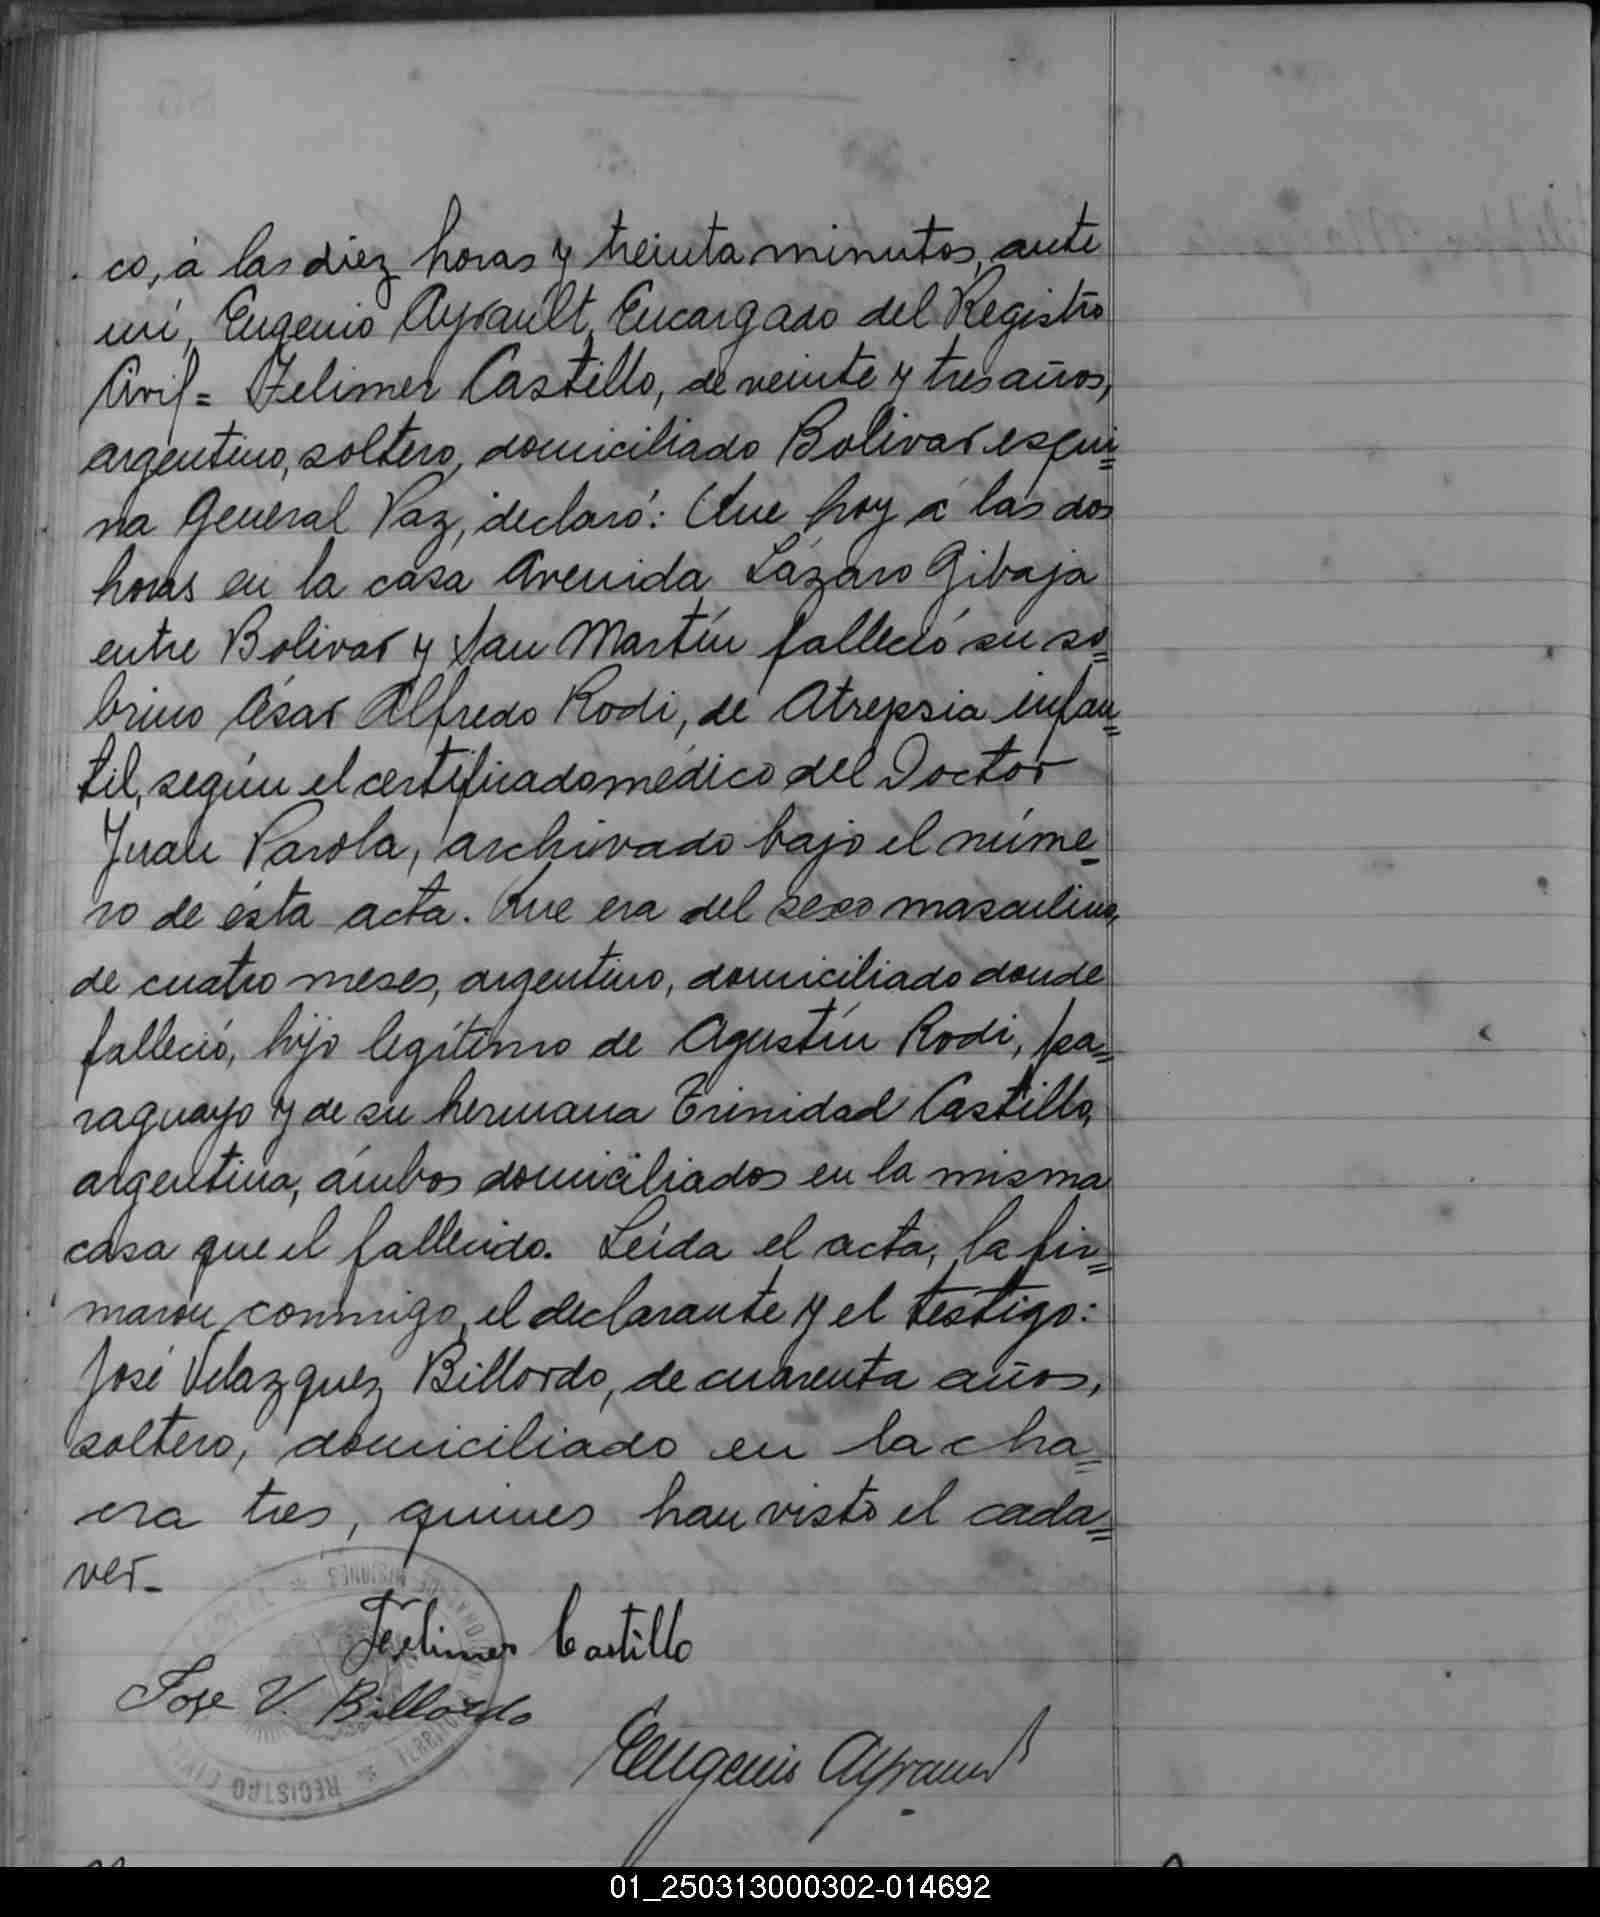 co, á las diez horas y treinta minutos, ante
mí, Eugenio Ayrault, Encargado del Registro
Civil = Felimer Castillo, de veinte y tres años,
argentino, soltero, domiciliado Bolivar esqui=
na General Paz, declaró: Que hoy á las dos
horas en la casa Avenida Lázaro Gibaja
entre Bolivar y San Martín falleció su so=
brino César Alfredo Rodi, de Atrepsia infan=
til, según el certificado médico del Doctor
Juan Parola, archivado bajo el núme-
ro de ésta acta. Que era del sexo masculino,
de cuatro meses, argentino, domiciliado donde
falleció, hijo legítimo de Agustín Rodi, pa=
raguayo y de su hermana Trinidad Castillo,
argentina, ámbos domiciliados en la misma
casa que el fallecido. Leída el acta, la fir=
maron conmigo, el declarante y el testigo:
José Velazquez Billordo, de cuarenta años,
soltero, domiciliado en la cha=
cra tres, quines han visto el cada=
ver-
Felimer Castillo
Jose V. Billordo
Eugenio Ayrault
REGISTRO CIVIL
MISIONES
01_250313000302-014692